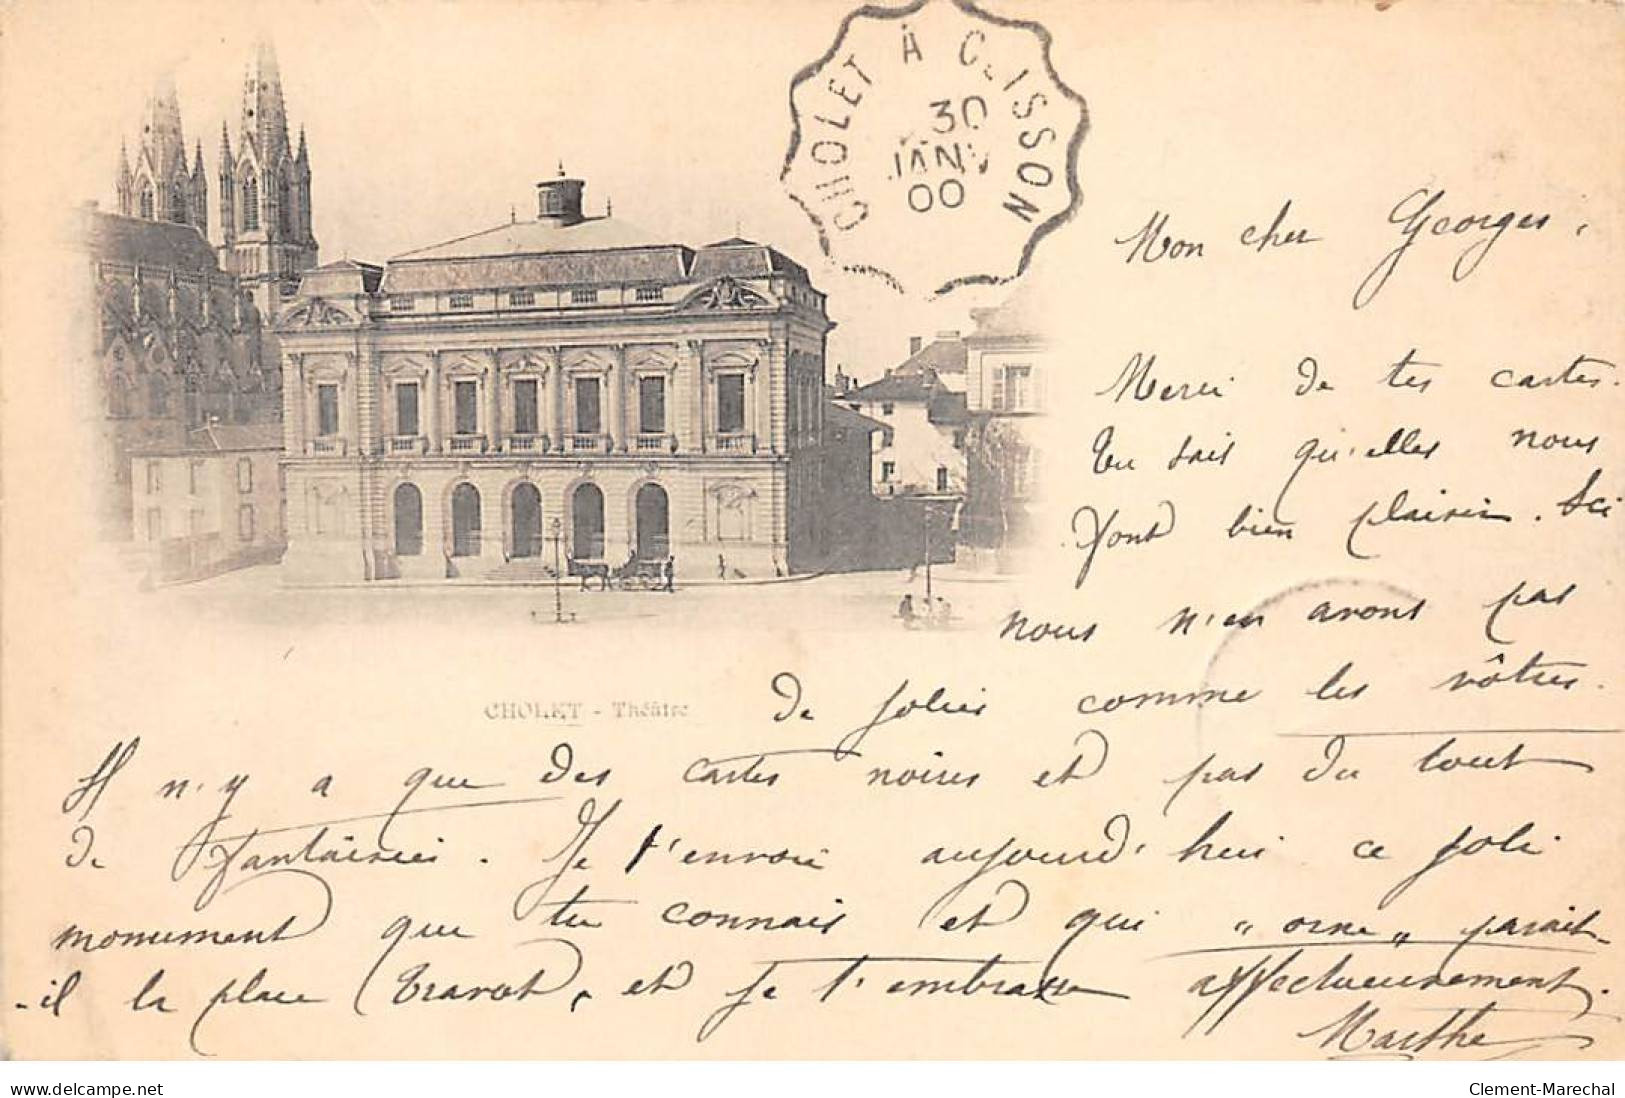 CHOLET À CLISSON
30
JANV
00
Mon cher Georges,
Merci de tes cartes.
Tu sais qu'elles nous
font bien plaisir. Ici
nous n'en avons pas
de jolies comme les vôtres.
CHOLET - Théâtre
Il n'y a que des cartes noires et pas du tout
de fantaisies. Je t'envoie aujourd'hui ce joli
monument que tu connais et qui "orne" parait-
-il la place Travot, et je t'embrasse affectueusement.
Marthe
www.delcampe.net
Clement-Marechal